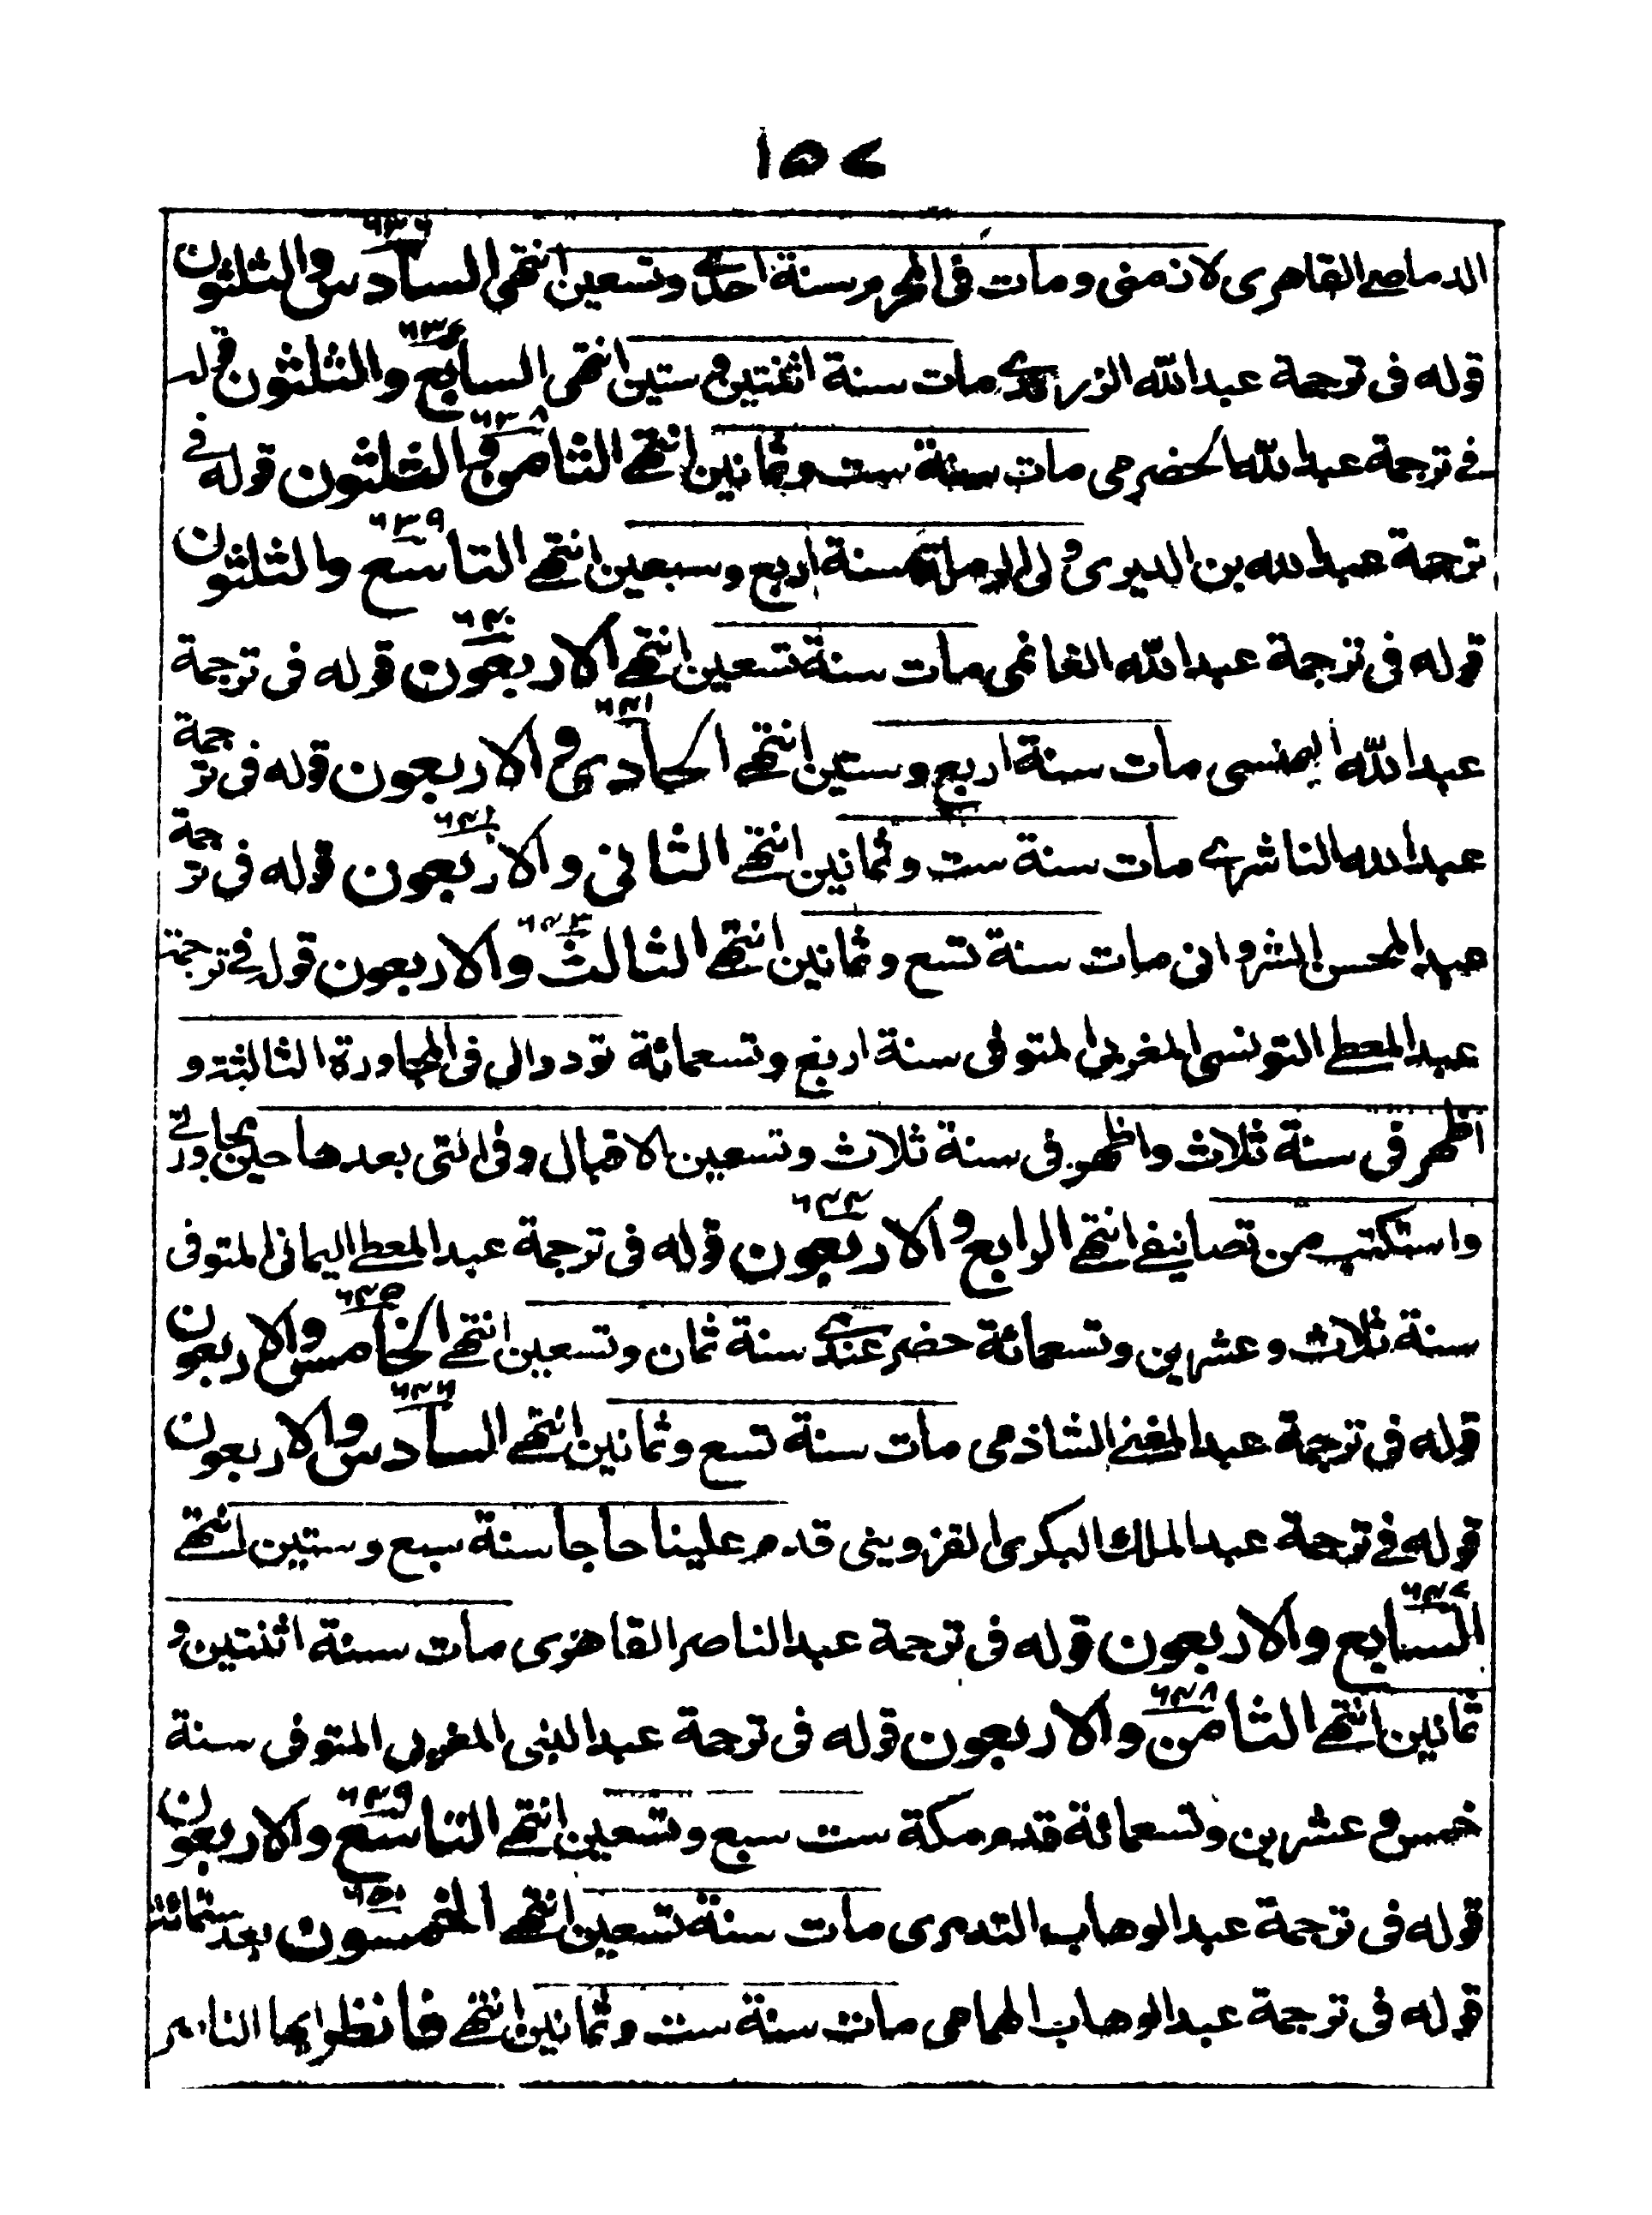 ١٥٧
٦٣٦
الدماصى القاهرى لازمنى ومات فى المحرم سنة احدى وتسعين انتهى السادس والثلثون
٦٣٧
قوله فى ترجمة عبد الله الزرندى مات سنة اثنتين وستين انتهى السابع والثلثون قوله
٦٣٨
فى ترجمة عبد الله الحضرمى مات سنة ست وثمانين انتهى الثامن والثلثون قوله فى
٦٣٩
ترجمة عبد الله بن الديرى ولى الرملة سنة اربع وسبعين انتهى التاسع والثلثون
٦٤٠
قوله فى ترجمة عبد الله الغانمى مات سنة تسعين انتهى الاربعون قوله فى ترجمة
٦٤١
عبد الله البهنسى مات سنة اربع وستين انتهى الحادى والاربعون قوله فى ترجمة
٦٤٢
عبد الله الناشرى مات سنة ست وثمانين انتهى الثانى والاربعون قوله فى ترجمة
٦٤٣
عبد المحسن الشروانى مات سنة تسع وثمانين انتهى الثالث والاربعون قوله فى ترجمة
عبد المعطى التونسى المغربى المتوفى سنة اربع وتسعمائة تودد الى فى المجاورة الثالثة و
اظهر فى سنة ثلاث واظهر فى سنة ثلاث وتسعين الاقبال وفى التى بعدها حين مجاورتى
٦٤٤
واستكتب من تصانيفى انتهى الرابع والاربعون قوله فى ترجمة عبد المعطى اليمانى المتوفى
٦٤٥
سنة ثلاث وعشرين وتسعمائة حضر عندى سنة ثمان وتسعين انتهى الخامس والاربعون
٦٤٦
قوله فى ترجمة عبد المغنى الشاذمى مات سنة تسع وثمانين انتهى السادس والاربعون
قوله فى ترجمة عبد الملك البكرى القزوينى قدم علينا حاجا سنة سبع وستين انتهى
٦٤٧
السابع والاربعون قوله فى ترجمة عبد الناصر القاهرى مات سنة اثنتين و
٦٤٨
ثمانين انتهى الثامن والاربعون قوله فى ترجمة عبد النبى المغربى المتوفى سنة
٦٤٩
خمس وعشرين وتسعمائة قدم مكة ست سبع وتسعين انتهى التاسع والاربعون
٦٥٠
قوله فى ترجمة عبد الوهاب التدمرى مات سنة تسعين انتهى الخمسون بعد ستمائة
قوله فى ترجمة عبد الوهاب الهمامى مات سنة ست وثمانين انتهى فانظر ايها الناصر